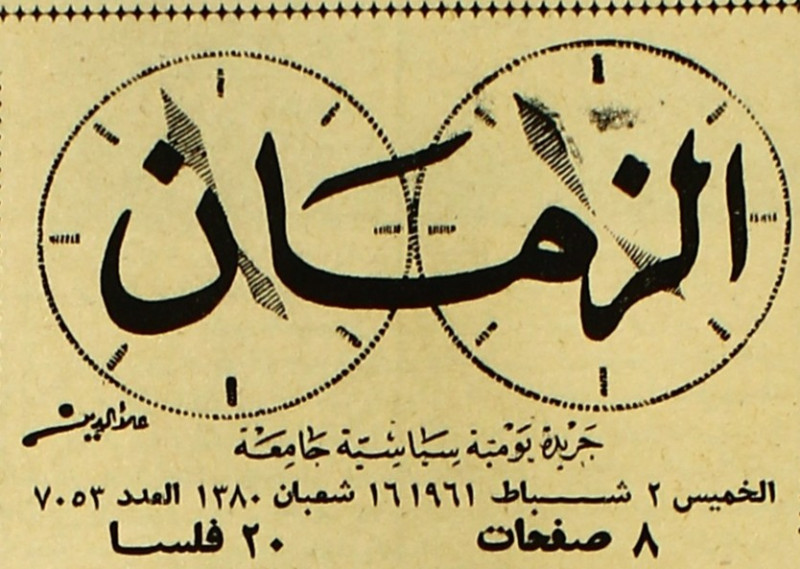 الزمان
علاء الدين
جريدة يومية سياسية جامعة
الخميس ٢ شباط ١٩٦١ ١٦ شعبان ١٣٨٠ العدد ٧٠٥٣
٨ صفحات ٢٠ فلسا